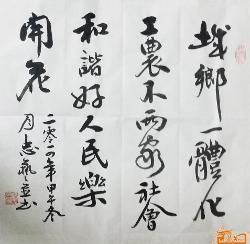 城鄉一體化
工農不两家社會
和諧好人民樂
開花
二零一四年甲午春
月志藝立書